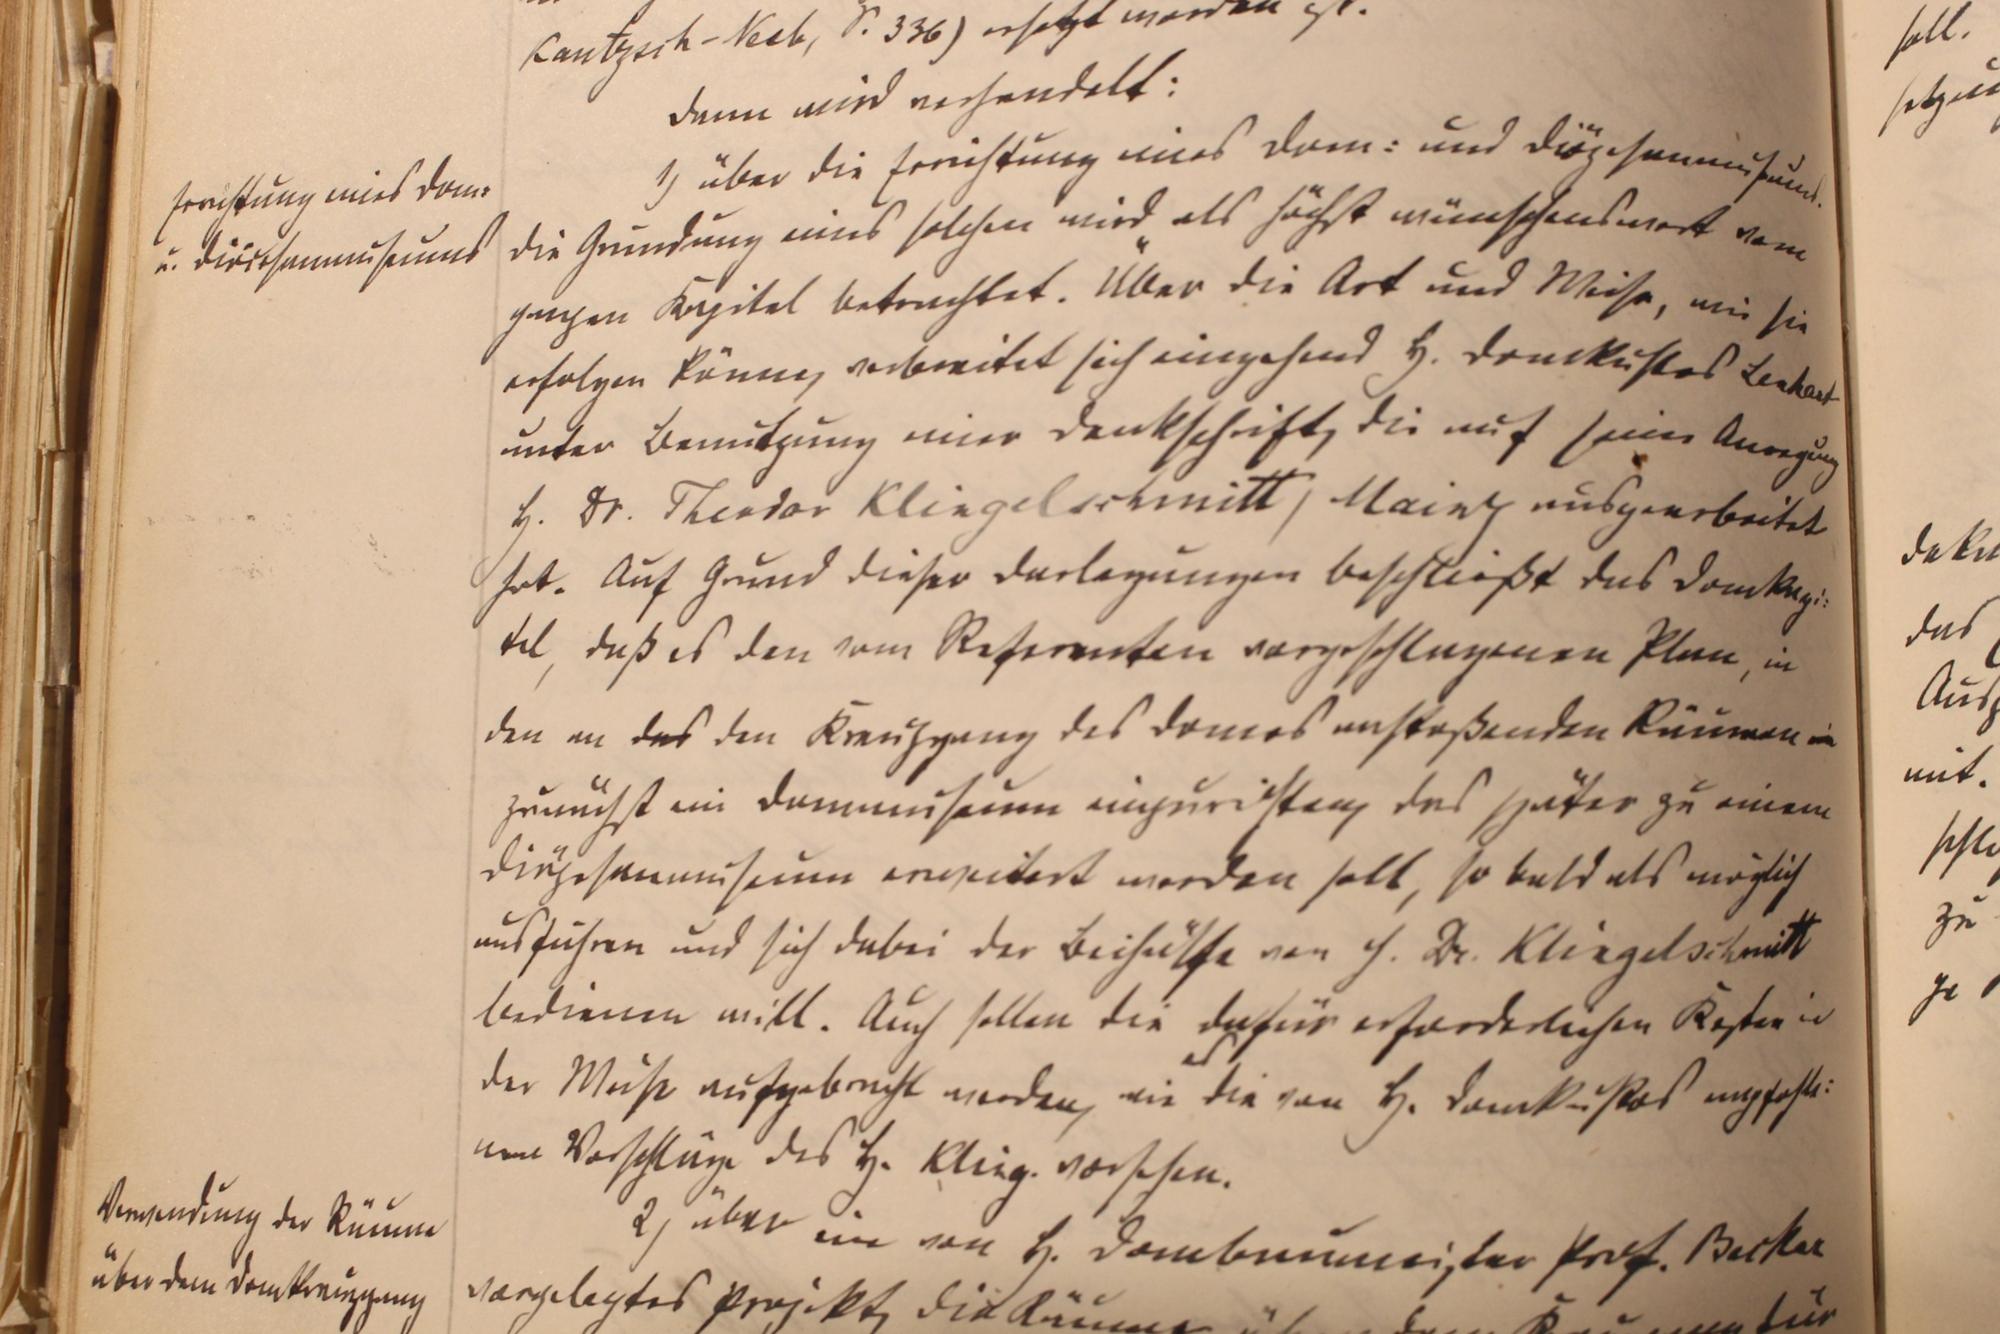 Kantzsch-Neeb, S. 336) ersetzt worden ist.
Dann wird verhandelt:
Errichtung eines Dom=
u. Diöcesanmuseums
1) über die Errichtung eines Dom= und Diözesanmuseums.
die Gründung eines solchen wird als höchst wünschenswert vom
ganzen Kapitel betrachtet. Über die Art und Weise, wie sie
erfolgen könne, verbreitet sich eingehend H. Domkustos Lenhart
unter Benutzung einer Denkschrift, die auf seine Anregung
H. Dr. Theodor Klingelschmitt, Mainz ausgearbeitet
hat. Auf Grund dieser Darlegungen beschließt das Domkapi=
tel, daß es den vom Referenten vorgeschlagenen Plan, in
den an das den Kreuzgang des Domes anstoßenden Räumen
zunächst ein Dommuseum einzurichten, das später zu einem
Diözesanmuseum erweitert werden soll, so bald als möglich
ausführen und sich dabei der Beihülfe von H. Dr. Klingelschmitt
bedienen will. Auch sollen die dafür erforderlichen Kosten in
der Weise aufgebracht werden, wie es die von H. Domkustos empfohle=
nen Vorschläge des H. Kling. vorsehen.
Verwendung der Räume
über dem Domkreuzgang
2) über ein von H. Dombaumeister Prof. Becker
vorgelegtes Projekt, die Räume über dem Kreuzgang für
soll.
das
mit.
zu